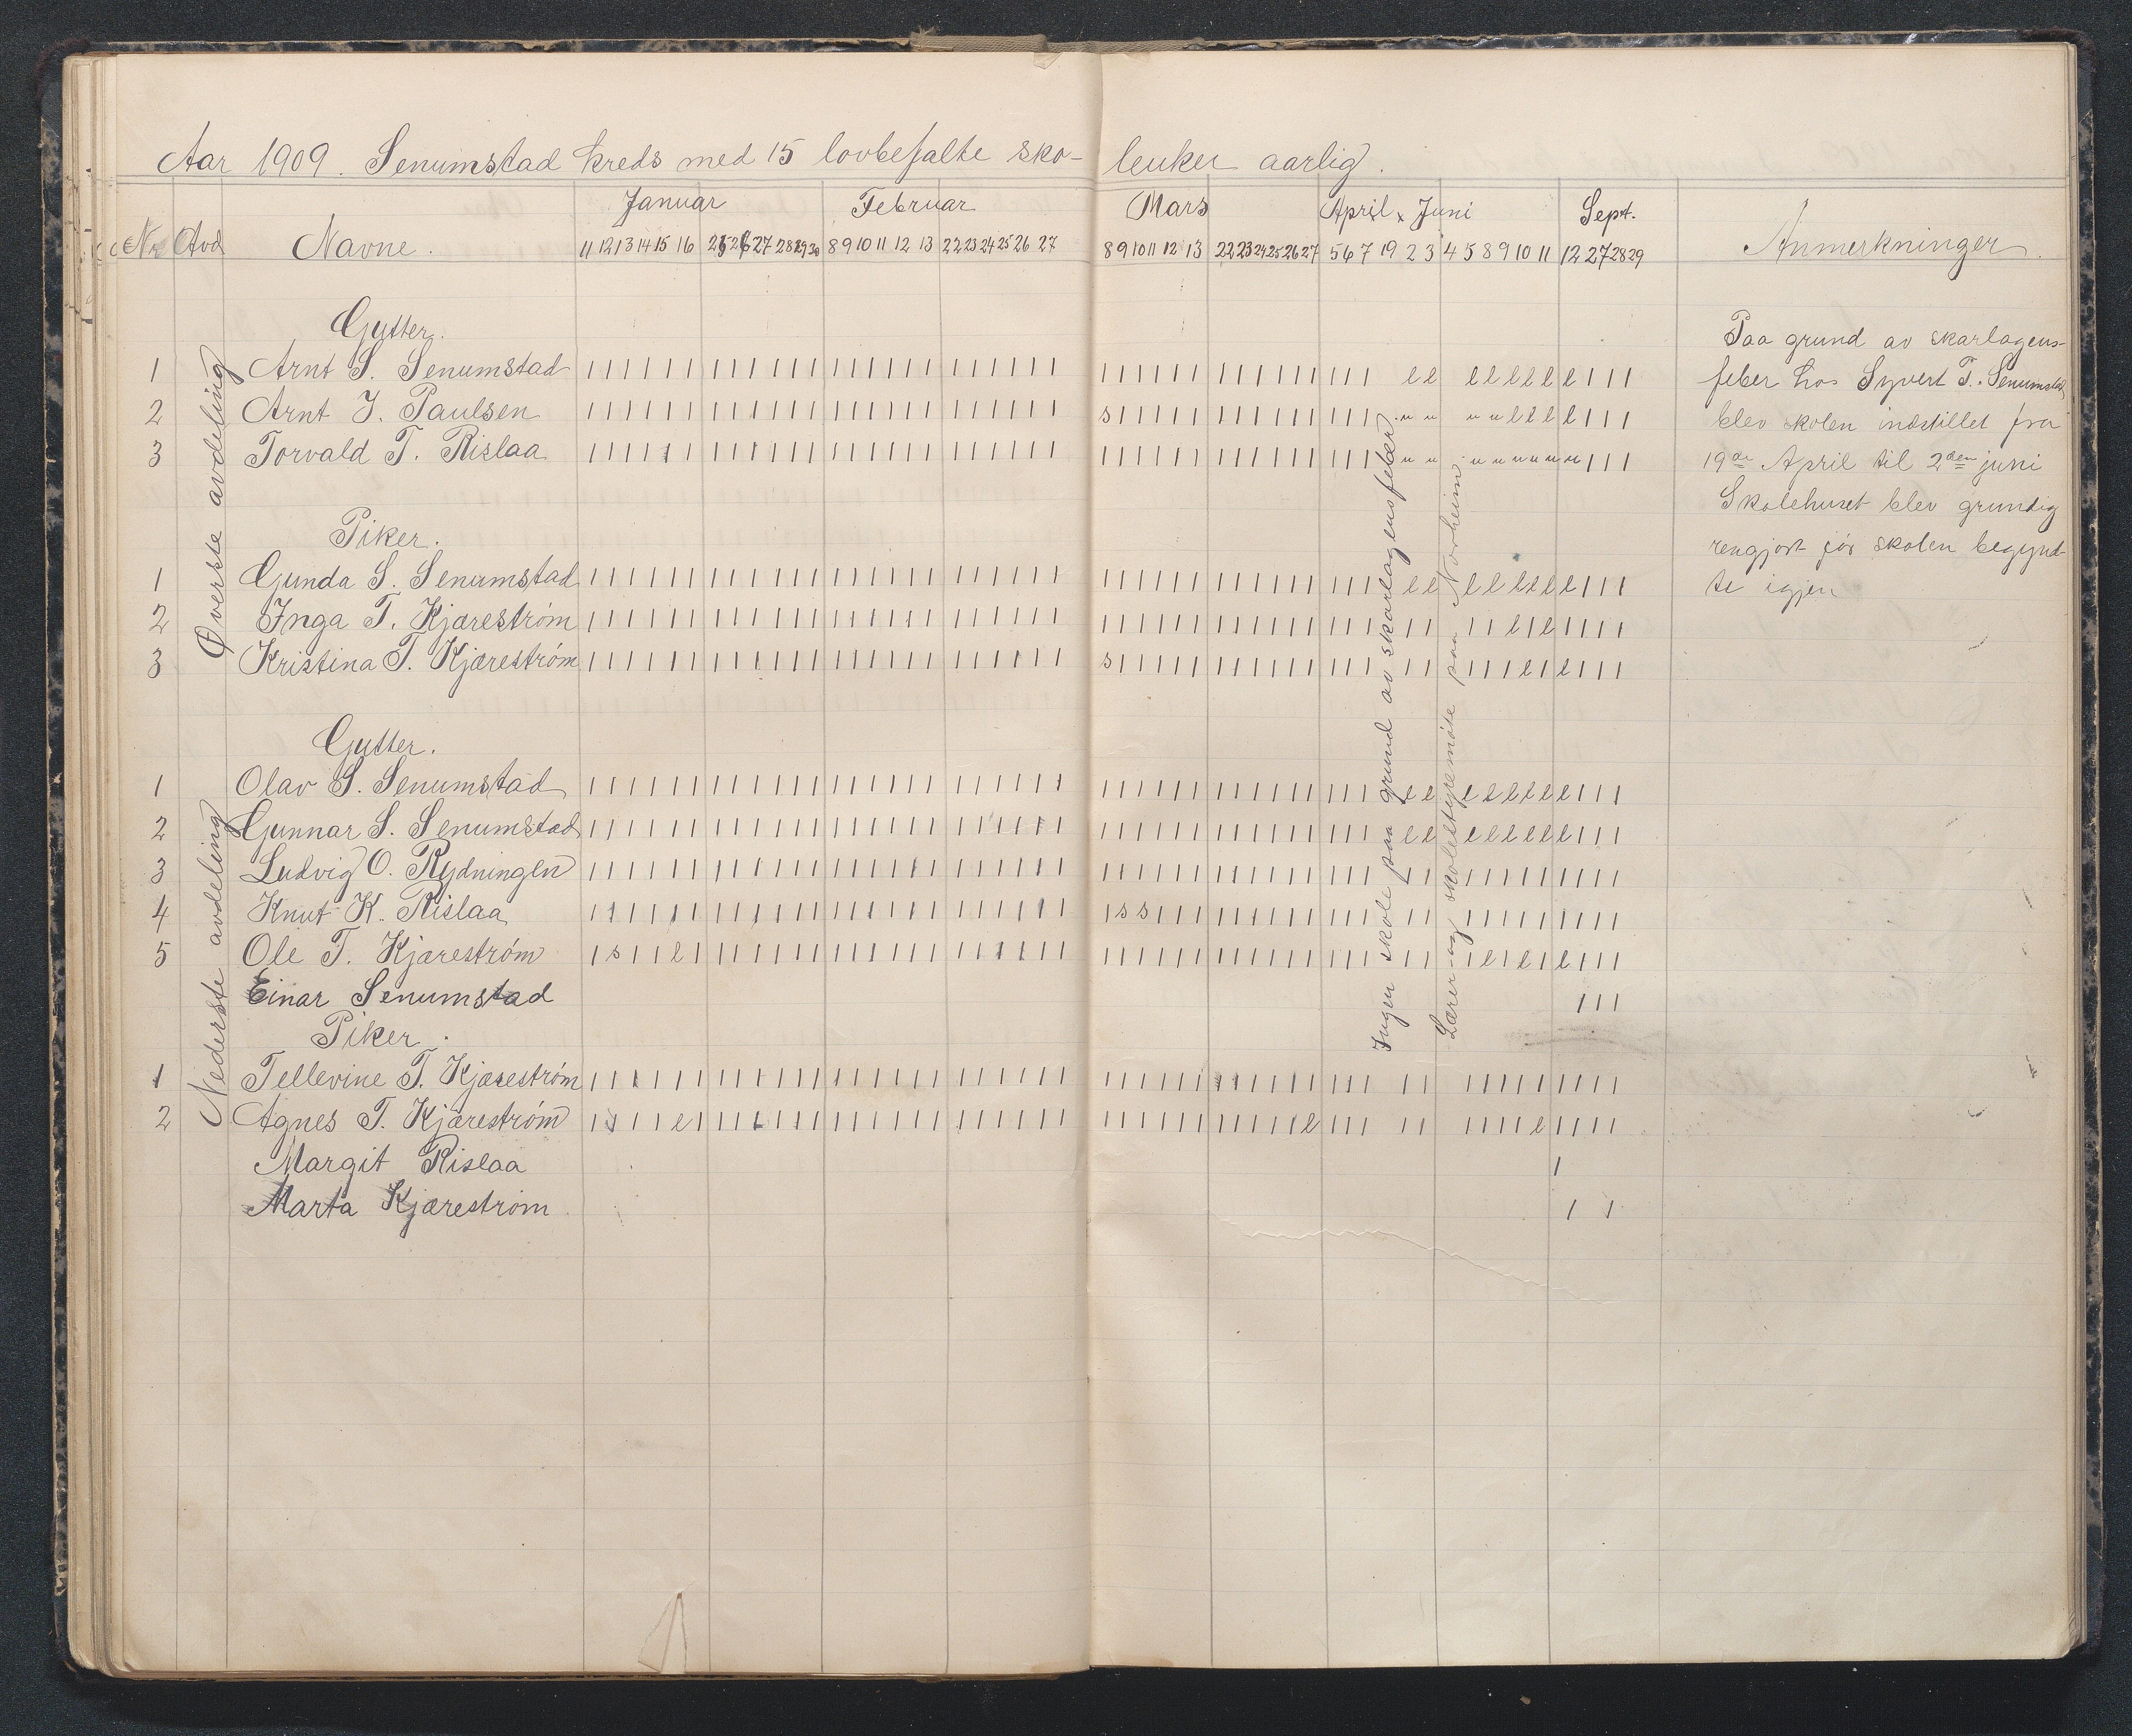 Aar 1909. Senumstad kreds med 15 lovbefalte sko- leuker aarlig.
Januar Februar Mars April & Juni Sept.
Nr Avd Navne. 11 12 13 14 15 16 25 26 27 28 29 30 8 9 10 11 12 13 22 23 24 25 26 27 8 9 10 11 12 13 22 23 24 25 26 27 5 6 7 19 2 3 4 5 8 9 10 11 12 27 28 29 Anmerkninger.
Øverste avdeling
Gutter.
1 Arnt S. Senumstad
2 Arnt J. Paulsen
3 Torvald T. Rislaa
Piker.
1 Gunda S. Senumstad
2 Inga T. Kjæreström
3 Kristina T. Kjæreström
Nederste avdeling
Gutter.
1 Olav S. Senumstad
2 Gunnar S. Senumstad
3 Ludvig O. Rydningen
4 Knut K. Rislaa
5 Ole T. Kjæreström
Einar Senumstad
Piker.
1 Tellevine T. Kjæreström
2 Agnes T. Kjæreström
Margit Rislaa
Marta Kjæreström
Ingen skole paa grund av skarlagensfeber
Lærer og skolestyremöte paa Norheim
Paa grund av skarlagens-
feber hos Syvert T. Senumstad
blev skolen indstillet fra
19de April til 2den juni
Skolehuset blev grundig
rengjort för skolen begynd-
te igjen